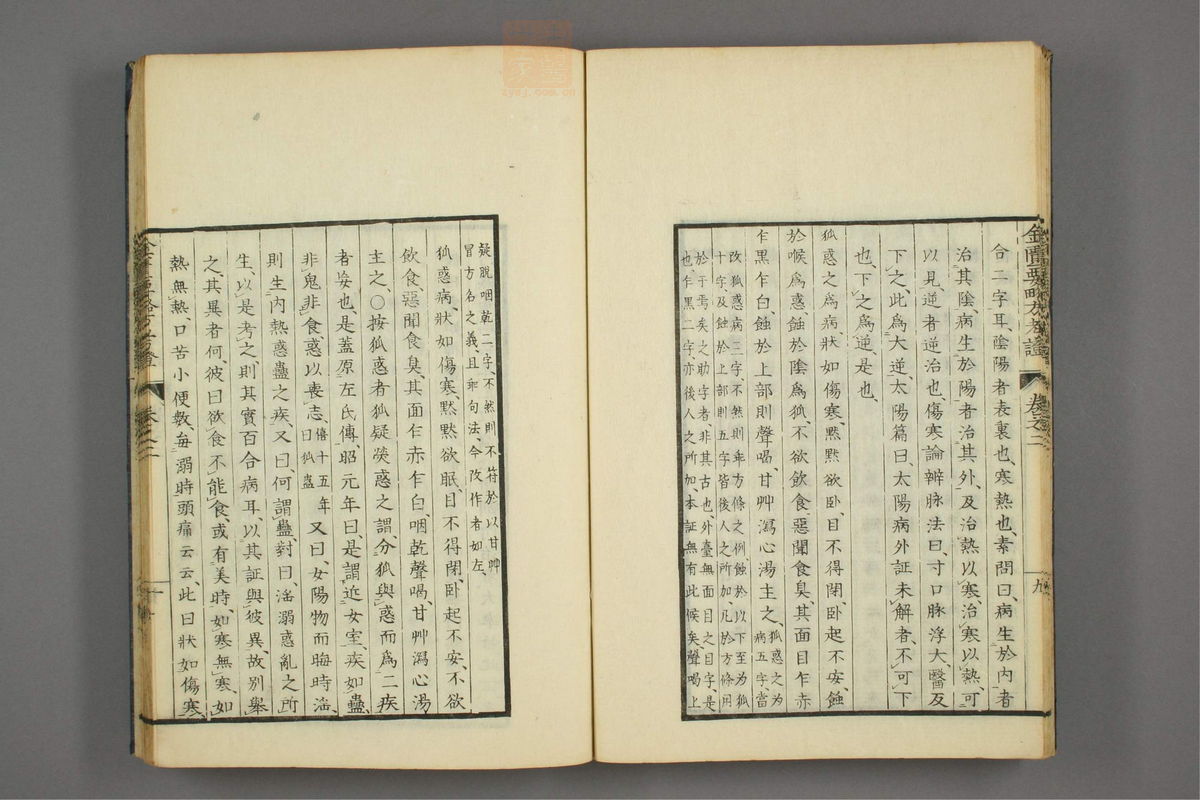 合二字耳、陰陽者表裏也、寒熱也、素問曰、病生於內者
治其陰、病生於陽者治其外、及治熱以寒、治寒以熱、可
以見、逆者逆治也、傷寒論辨脉法曰、寸口脉浮大、醫反
下之、此爲大逆、太陽篇曰、太陽病外証未解者、不可下
也、下之爲逆、是也、
狐惑之爲病、狀如傷寒、黙黙欲臥、目不得閉、臥起不安、蝕
於喉爲惑、蝕於陰爲狐、不欲飲食、惡聞食臭、其面目乍赤
乍黑乍白、蝕於上部則聲喝、甘艸瀉心湯主之、
狐惑之为
病五字、當
改狐惑病三字、不然則乖方條之例、蝕於以下至为狐
十字、及蝕於上部則五字、皆後人之所加、凡於方條用
於于焉矣之助字者、非其古也、外臺無面目之目字、是
也、乍黑二字、亦後人之所加、本証無有此候矣、聲喝上
金匱要略方考證
卷之二
九
疑脫咽乾二字、不然則不符於以甘艸
冒方名之義、且乖句法、今改作者如左、
狐惑病、狀如傷寒、黙黙欲眠、目不得閉、臥起不安、不欲
飲食、惡聞食臭、其面乍赤乍白、咽乾聲喝、甘艸瀉心湯
主之、○按狐惑者、狐疑熒惑之謂、分狐與惑而爲二疾
者妄也、是蓋原左氏傳、昭元年曰、是謂近女室、疾如蠱、
非鬼非食、惑以喪志、
僖十五年
曰狐蠱
又曰、女陽物而晦時、淫
則生內熱惑蠱之疾、又曰、何謂蠱、對曰、淫溺惑亂之所
生、以是考之、則其實百合病耳、以其証與彼異、故別擧
之、其異者何、彼曰欲食不能食、或有美時、如寒無寒、如
熱無熱、口苦小便數、每溺時頭痛云云、此曰狀如傷寒、
卷之二